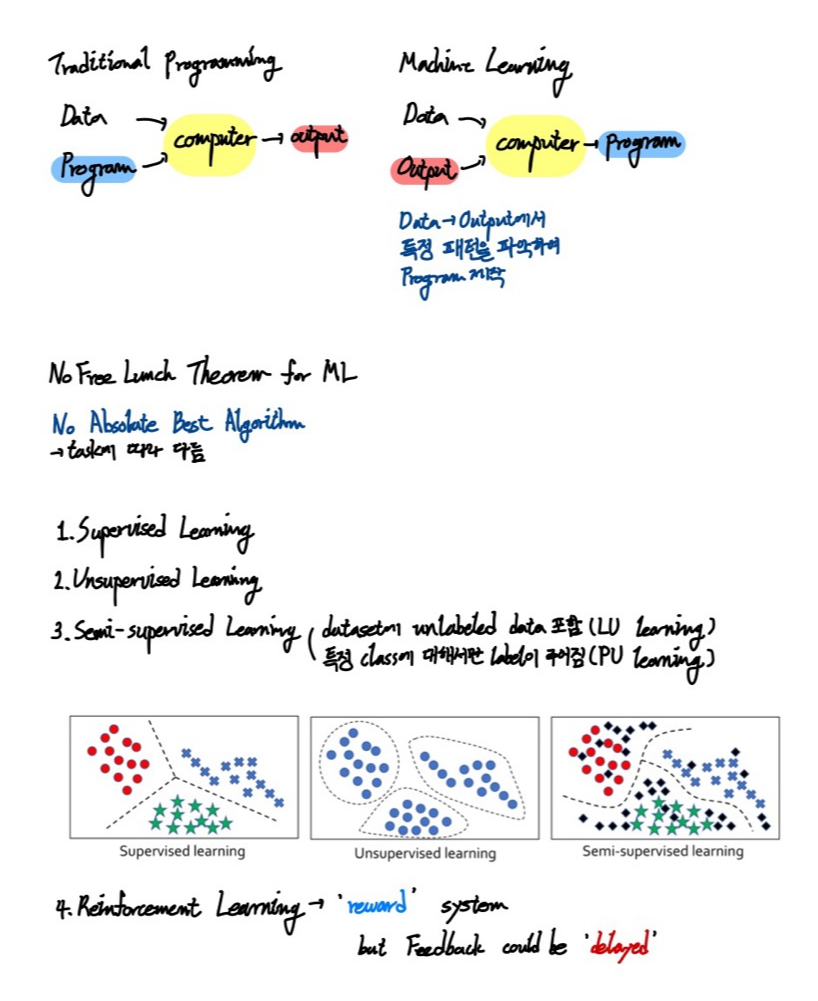 Traditional Programming
Data → computer → output
Program →
Machine Learning
Data → computer → Program
Output →
Data → Output에서
특정 패턴을 파악하여
Program 제작
No Free Lunch Theorem for ML
No Absolute Best Algorithm
→ task에 따라 다름
1. Supervised Learning
2. Unsupervised Learning
3. Semi-supervised Learning ( dataset에 unlabeled data 포함 (LU learning)
특정 class에 대해서만 label이 주어짐 (PU learning)
Supervised learning
Unsupervised learning
Semi-supervised learning
4. Reinforcement Learning → 'reward' system
but Feedback could be 'delayed'